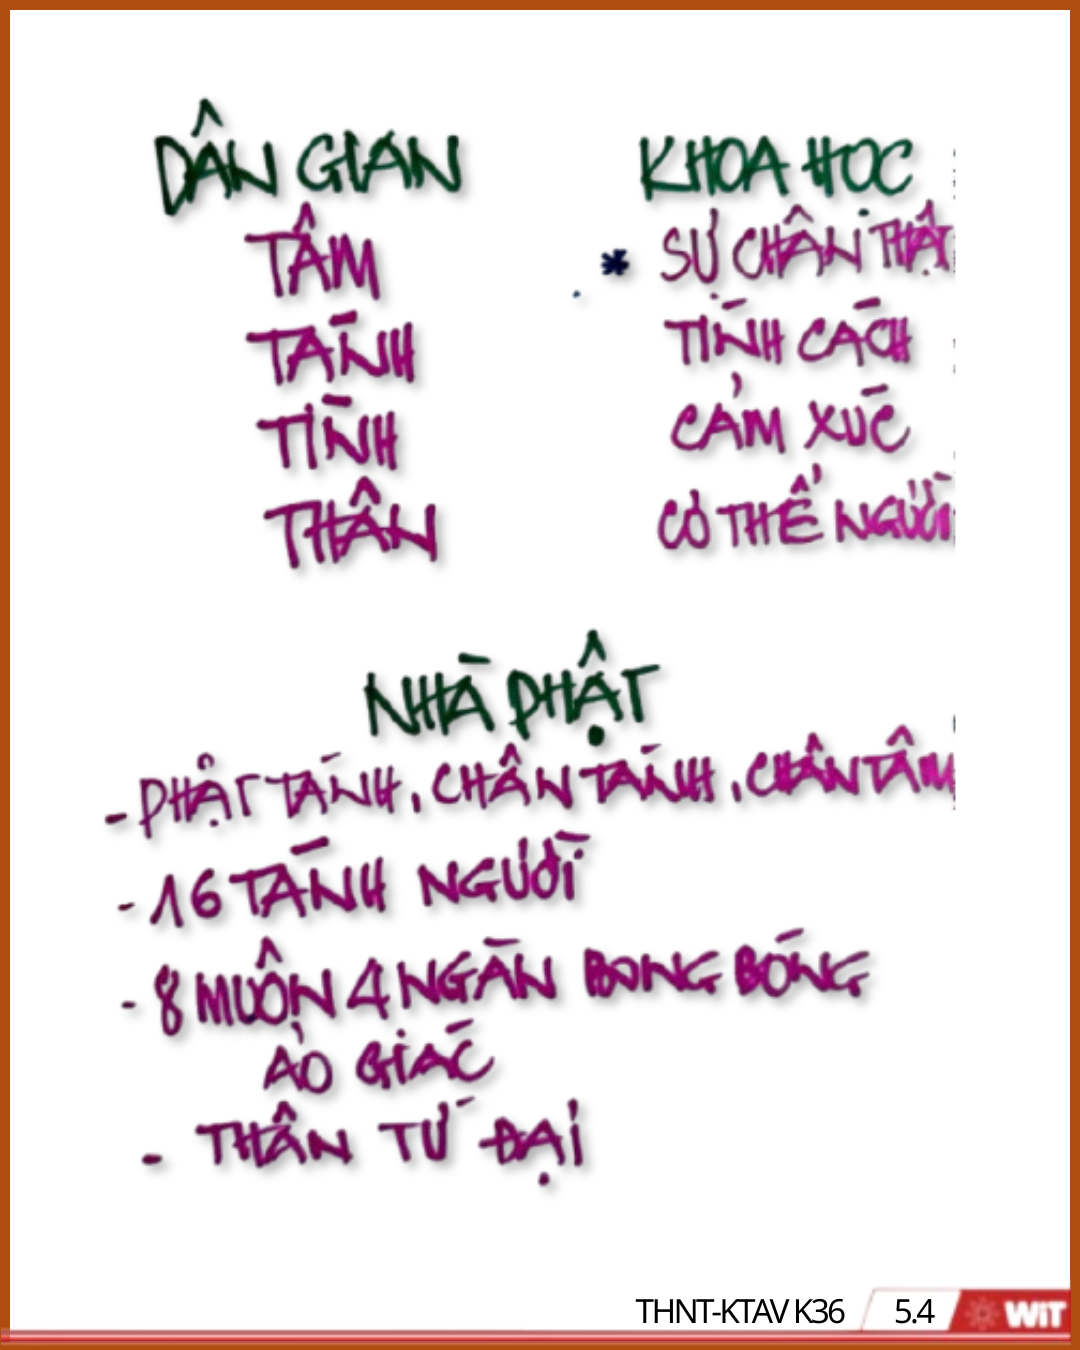 DÂN GIAN
TÂM
TÁNH
TÌNH
THÂN
KHOA HỌC
* SỰ CHÂN THẬT
TÍNH CÁCH
CẢM XÚC
CƠ THỂ NGƯỜI
NHÀ PHẬT
- PHẬT TÁNH, CHÂN TÁNH, CHÂN TÂM
- 16 TÁNH NGƯỜI
- 8 MUÔN 4 NGÀN BONG BÓNG
ẢO GIÁC
- THÂN TỨ ĐẠI
THNT-KTAV K36 5.4 WiT